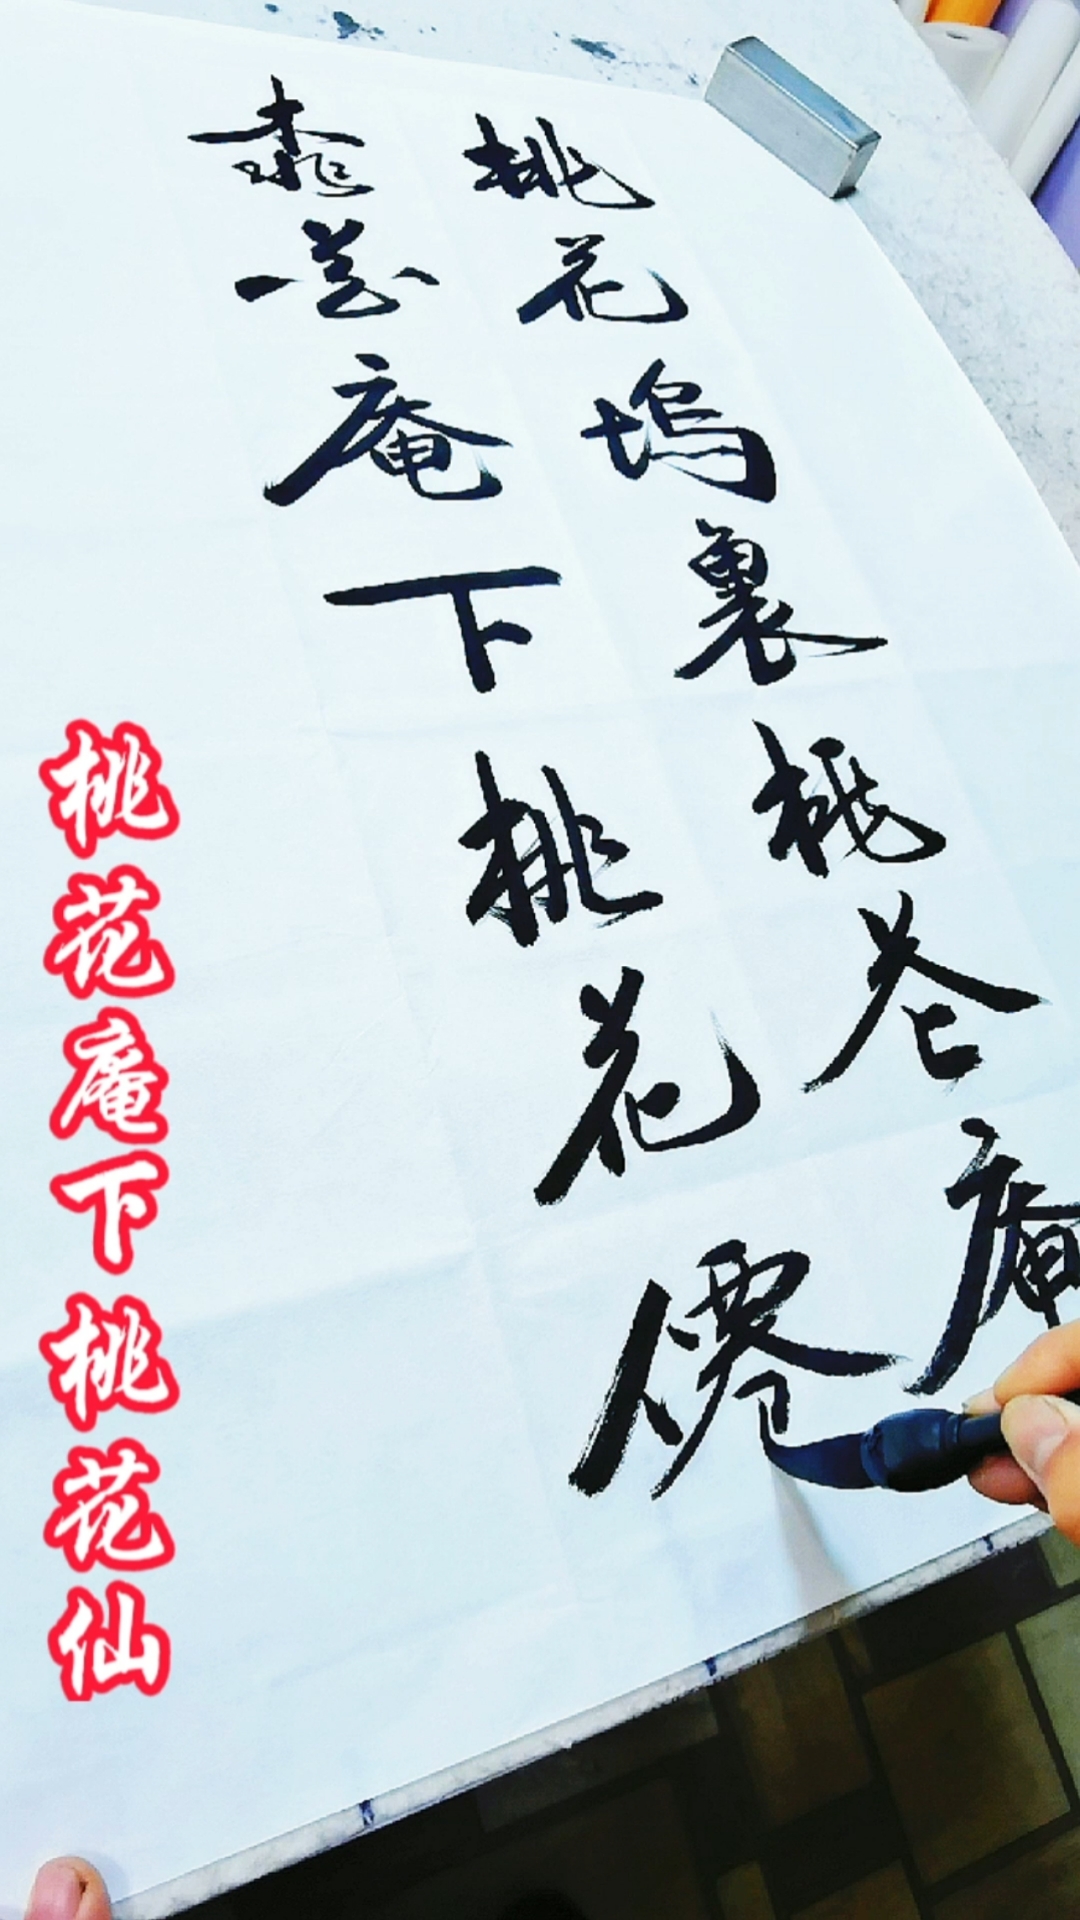 桃花塢裏桃花庵
桃花庵下桃花僊
桃花庵下桃花仙